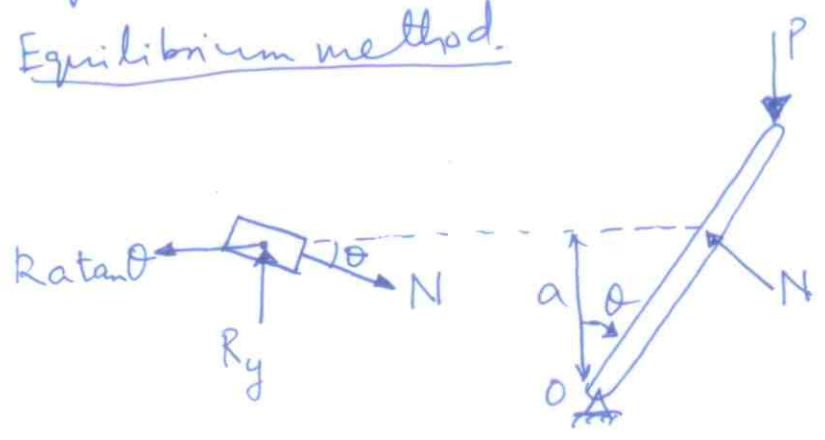 Equilibrium method.
P
Ratanθ
θ
N
a
θ
N
Ry
O